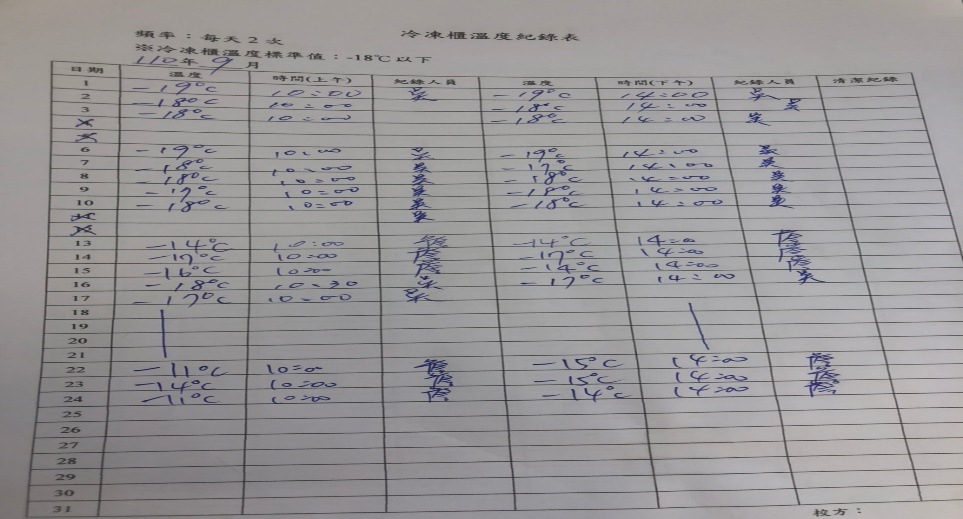 頻率：每天2次 冷凍櫃溫度紀錄表
※冷凍櫃溫度標準值：-18℃以下
110年 9月
日期 溫度 時間(上午) 紀錄人員 溫度 時間(下午) 紀錄人員 清潔紀錄
1 -19°C 10:00 吳 -19°C 14:00 吳
2 -18°C 10:00 -18°C 14:00 吳
3 -18°C 10:00 -18°C 14:00 吳
6 -19°C 10:00 吳 -19°C 14:00 吳
7 -18°C 10:00 吳 -17°C 14:00 吳
8 -18°C 10:00 吳 -18°C 14:00 吳
9 -17°C 10:00 吳 -18°C 14:00 吳
10 -18°C 10:00 吳 -18°C 14:00 吳
吳
13 -14°C 10:00 -14°C 14:00
14 -17°C 10:00 -17°C 14:00
15 -16°C 10:00 -14°C 14:00
16 -18°C 10:30 吳 -17°C 14:00 吳
17 -17°C 10:00 吳
18
19
20
21
22 -11°C 10:00 -15°C 14:00
23 -14°C 10:00 -15°C 14:00
24 -11°C 10:00 -14°C 14:00
25
26
27
28
29
30
31
校方：